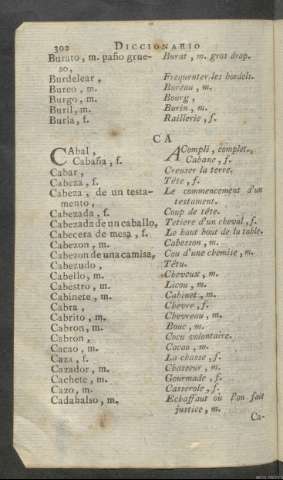 302 DICCIONARIO
Burato, m. paño grue-
so,
Burdelear,
Bureo, m.
Burgo, m.
Buril, m.
Burla, f.
Burat, m. gros drap.
Frequenter les bordels.
Bureau, m.
Bourg,
Burin, m.
Raillerie, f.
CA
CAbal,
Cabaña, f.
Cabar,
Cabeza, f.
Cabeza, de un testa-
mento,
Cabezada, f.
Cabezada de un caballo,
Cabecera de mesa, f.
Cabezon, m.
Cabezon de una camisa,
Cabezudo,
Cabello, m.
Cabestro, m.
Cabinete, m.
Cabra,
Cabrito, m.
Cabron, m.
Cabron,
Cacao, m.
Caza, f.
Cazador, m.
Cachete, m.
Cazo, m.
Cadahalso, m.
ACompli, complet,
Cabane, f.
Creuser la terre.
Tête, f.
Le commencement d'un
testament.
Coup de tête.
Tetiere d'un cheval, f.
Le haut bout de la table.
Cabesson, m.
Cou d'une chemise, m.
Têtu.
Cheveux, m.
Licou, m.
Cabinet, m.
Chevre, f.
Chevreau, m.
Bouc, m.
Cocu volontaire.
Cacau, m.
La chasse, f.
Chasseur, m.
Gourmade, f.
Casserole, f.
Echaffaut où l'on fait
justice, m.
Ca-